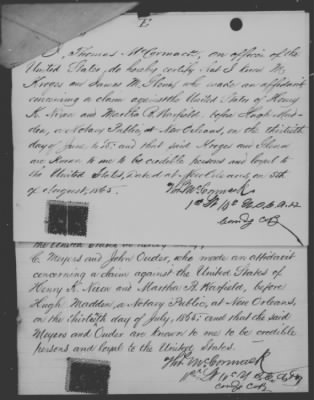 E
I, Thomas McCormack, an officer of the
United States, do hereby certify that I know
Kroges and James M. who made an affidavit
concerning a claim against the United States of Henry
K. Nixon and Martha R. Kerfield, before Hugh Mad-
den, a Notary Public, at New Orleans, on the thirtieth
day of June, 1865: and that said Kroges and
are known to me to be credible persons and loyal to the
United States, Dated at New Orleans, on 5th
of August, 1865.
Thos. McCormack
1st Lt 10th
Comdg Co B
the United States
C. Meyers and John Cuder, who made an affidavit
concerning a claim against the United States of
Henry K. Nixon and Martha R. Kerfield, before
Hugh Madden, a Notary Public, at New Orleans,
on the thirtieth day of July, 1865: and that the said
Meyers and Cuder are known to me to be credible
persons and loyal to the United States.
Thos. McCormack
1st Lt 10th
Comdg Co B